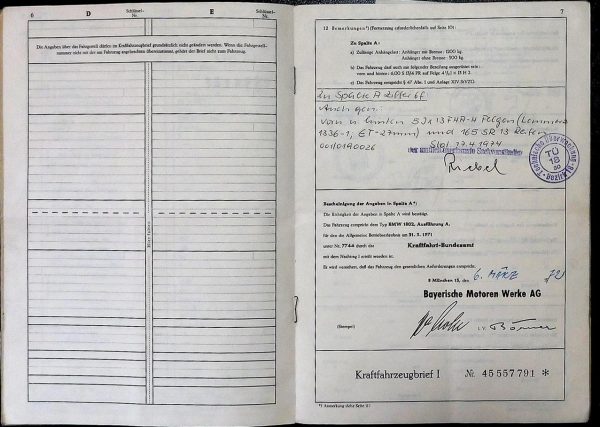 6
D
Schlüssel-
Nr.
E
Schlüssel-
Nr.
Die Angaben über das Fahrgestell dürfen im Kraftfahrzeugbrief grundsätzlich nicht geändert werden. Wenn die Fahrgestell-
nummer nicht mit der am Fahrzeug angebrachten übereinstimmt, gehört der Brief nicht zum Fahrzeug.
7
12 Bemerkungen*) (Fortsetzung erforderlichenfalls auf Seite 10):
Zu Spalte A:
a) Zulässige Anhängelast: Anhänger mit Bremse: 1200 kg.
Anhänger ohne Bremse: 500 kg.
b) Das Fahrzeug darf auch mit folgender Bereifung ausgerüstet sein:
vorn und hinten: 6.00 S 13/4 PR auf Felge 4½ J x 13 H 2.
c) Das Fahrzeug entspricht § 47 Abs. 1 und Anlage XIV StVZO.
Zu Spalte A Ziffer
Auch gen.:
vorn u hinten 5J x 13 F4A-H Felgen (Lemmerz
1336-1, ET-27mm) und 165 SR 13 Reifen
001/0190026
17.4.1974
Technische Überwachung
TÜ
18
Bescheinigung der Angaben in Spalte A*)
Die Richtigkeit der Angaben in Spalte A wird bestätigt.
Das Fahrzeug entspricht dem Typ BMW 1802, Ausführung A,
für den die Allgemeine Betriebserlaubnis am 31. 5. 1971
unter Nr. 7744 durch das Kraftfahrt-Bundesamt
mit dem Nachtrag 1 erteilt worden ist.
Es wird versichert, daß das Fahrzeug den gesetzlichen Anforderungen entspricht.
8 München 13, den 6. MÄRZ 1972
Bayerische Motoren Werke AG
(Stempel)
i.V.
Kraftfahrzeugbrief I Nr. 45 557 791 *
*) Anmerkung siehe Seite 11!